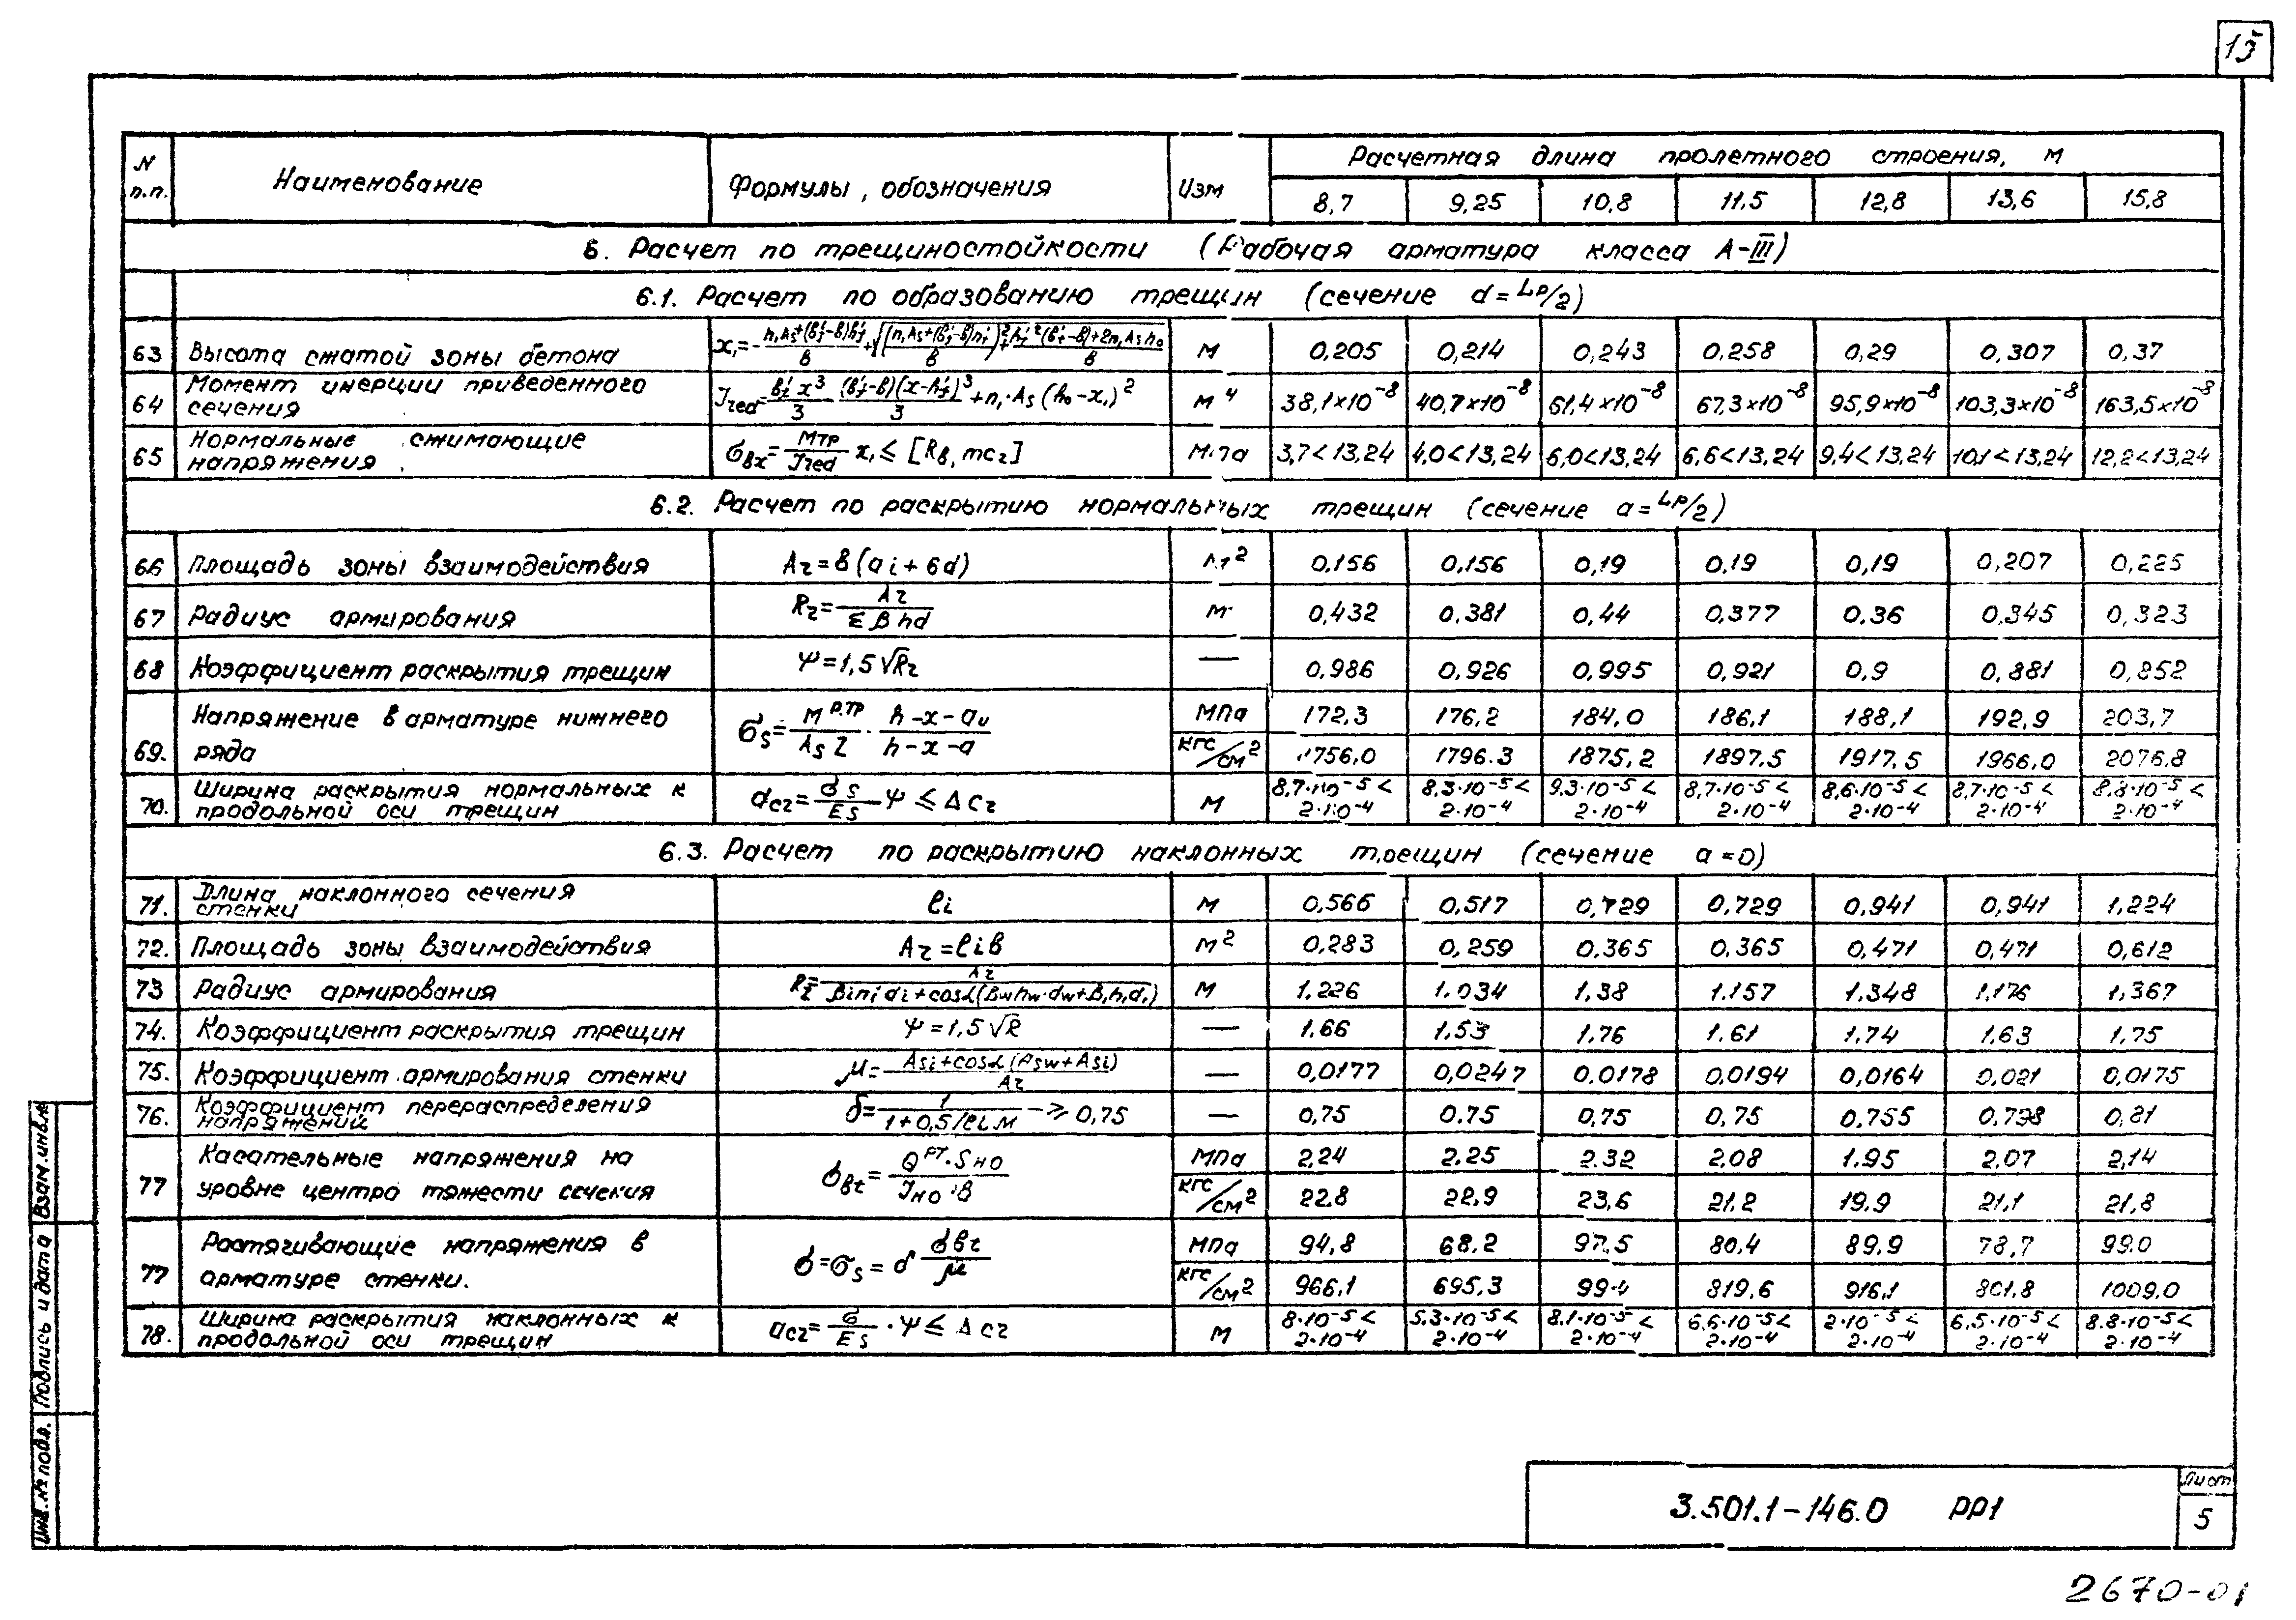 13
N п.п. Наименование Формулы, обозначения Изм Расчетная длина пролетного строения, м
8,7 9,25 10,8 11.5 12,8 13,6 15,8
6. Расчет по трещиностойкости (Рабочая арматура класса А-III)
6.1. Расчет по образованию трещин (сечение d = Lp/2)
63 Высота сжатой зоны бетона м 0,205 0,214 0,243 0,258 0,29 0,307 0,37
64 Момент инерции приведенного сечения Jred = b'f x³/3 (b'f-b)(x-h'f)³/3 + n₁·As(h₀-x₁)² м⁴ 38,1×10⁻⁸ 40,7×10⁻⁸ 61,4×10⁻⁸ 67,3×10⁻⁸ 95,9×10⁻⁸ 103,3×10⁻⁸ 163,5×10⁻⁸
65 Нормальные сжимающие напряжения σbx = Mтр/Jred x₁ ≤ [Rb, mc2] МПа 3,7<13,24 4,0<13,24 6,0<13,24 6,6<13,24 9,4<13,24 10,1<13,24 12,2<13,24
6.2. Расчет по раскрытию нормальных трещин (сечение a = Lp/2)
66 Площадь зоны взаимодействия Az = b(ai + 6d) м² 0,156 0,156 0,19 0,19 0,19 0,207 0,225
67 Радиус армирования Rz = Az/Σβnd м 0,432 0,381 0,44 0,377 0,36 0,345 0,323
68 Коэффициент раскрытия трещин ψ = 1,5√Rz — 0,986 0,926 0,995 0,921 0,9 0,881 0,852
69. Напряжение в арматуре нижнего ряда σs = M р.тр/As Z · h-x-au/h-x-a МПа 172,3 176,2 184,0 186,1 188,1 192,9 203,7
кгс/см² 1756,0 1796.3 1875,2 1897,5 1917,5 1966,0 2076,8
70. Ширина раскрытия нормальных к продольной оси трещин acz = σs/Es ψ ≤ Δcz м 8,7·10⁻⁵< 2·10⁻⁴ 8,3·10⁻⁵< 2·10⁻⁴ 9,3·10⁻⁵< 2·10⁻⁴ 8,7·10⁻⁵< 2·10⁻⁴ 8,6·10⁻⁵< 2·10⁻⁴ 8,7·10⁻⁵< 2·10⁻⁴ 8,8·10⁻⁵< 2·10⁻⁴
6.3. Расчет по раскрытию наклонных трещин (сечение a = 0)
71. Длина наклонного сечения стенки li м 0,566 0,517 0,729 0,729 0,941 0,941 1,224
72. Площадь зоны взаимодействия Az = lib м² 0,283 0,259 0,365 0,365 0,471 0,471 0,612
73 Радиус армирования Rz = Az/βinidi + cosα(βwnw·dw+β₁n₁d₁) м 1,226 1.034 1,38 1.157 1.348 1,176 1,367
74. Коэффициент раскрытия трещин ψ = 1,5√R — 1.66 1,53 1.76 1.61 1.74 1,63 1.75
75. Коэффициент армирования стенки μ = Asi+cosα(Asw+Asi)/Az — 0,0177 0,0247 0,0178 0,0194 0,0164 0,021 0,0175
76. Коэффициент перераспределения напряжений δ = 1/1+0,5/liμ ≥ 0,75 — 0,75 0.75 0,75 0,75 0.755 0,798 0,81
77 Касательные напряжения на уровне центра тяжести сечения σbt = Q рт·Sно/Jно·b МПа 2,24 2.25 2.32 2.08 1.95 2,07 2,14
кгс/см² 22.8 22,9 23,6 21.2 19.9 21,1 21,8
77 Растягивающие напряжения в арматуре стенки. σ = σs = δ σbt/μ МПа 94,8 68.2 97,5 80,4 89,9 78,7 99.0
кгс/см² 966,1 695,3 99·4 819,6 916,1 801,8 1009,0
78. Ширина раскрытия наклонных к продольной оси трещин acz = σ/Es · ψ ≤ Δcz м 8·10⁻⁵< 2·10⁻⁴ 5.3·10⁻⁵< 2·10⁻⁴ 8,1·10⁻⁵< 2·10⁻⁴ 6.6·10⁻⁵< 2·10⁻⁴ 2·10⁻⁵< 2·10⁻⁴ 6,5·10⁻⁵< 2·10⁻⁴ 8.8·10⁻⁵< 2·10⁻⁴
Инв. № подл. Подпись и дата Взам. инв. №
3.501.1-146.0 РР1
Лист
5
2670-01